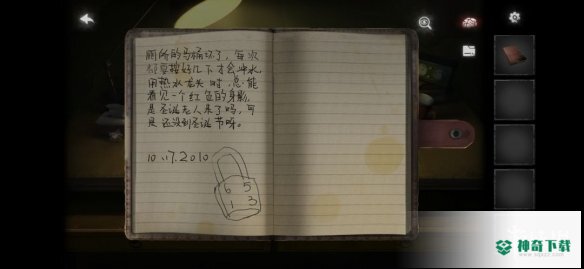 厕所的马桶坏了，每次
都要按好几下才会冲水，
用热水龙头时，总能
看见一个红色的身影，
是圣诞老人来了吗，可
是还没到圣诞节呀。
10.17.2010
6 5
1 3
神奇下载